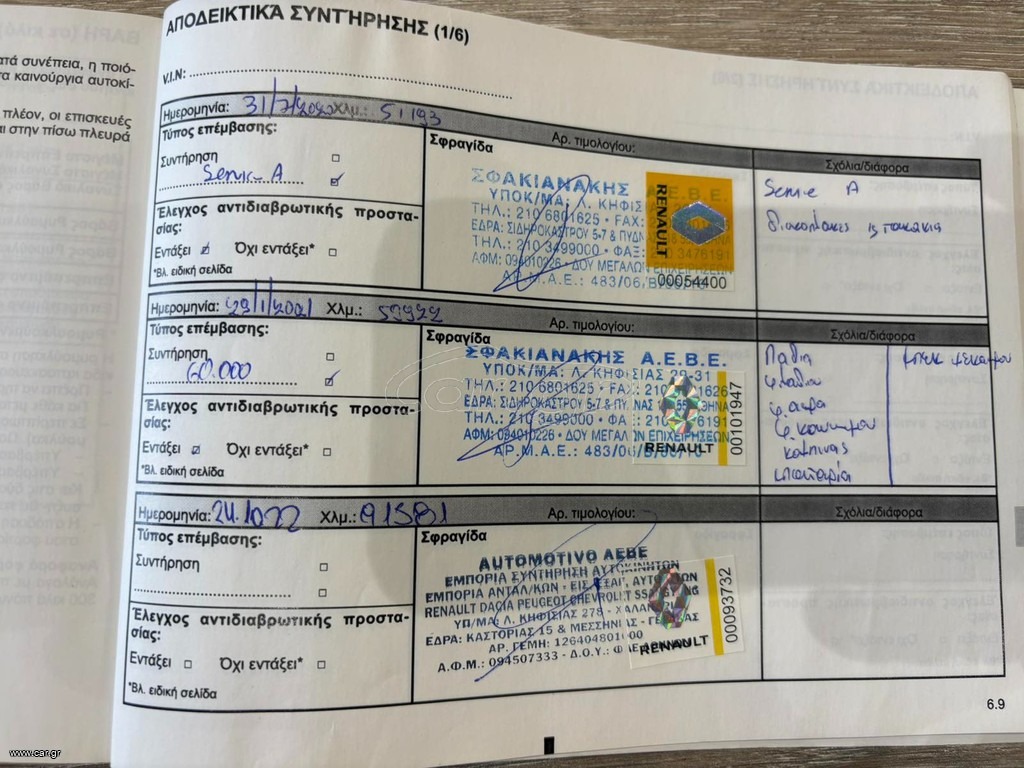 ΑΠΟΔΕΙΚΤΙΚΆ ΣΥΝΤΉΡΗΣΗΣ (1/6)
V.I.N:
ατά συνέπεια, η ποιό-
τα καινούργια αυτοκί-
πλέον, οι επισκευές
αι στην πίσω πλευρά
Ημερομηνία: 31/7/2020 Χλμ.: 51193
Τύπος επέμβασης:
Συντήρηση
Service A
Έλεγχος αντιδιαβρωτικής προστα-
σίας:
Εντάξει Όχι εντάξει*
*Βλ. ειδική σελίδα
Σφραγίδα Αρ. τιμολογίου:
ΣΦΑΚΙΑΝΑΚΗΣ Α.Ε.Β.Ε.
ΥΠΟΚ/ΜΑ: Λ. ΚΗΦΙΣ
ΤΗΛ.: 210 6801625 - FAX:
ΕΔΡΑ: ΣΙΔΗΡΟΚΑΣΤΡΟΥ 5-7 & ΠΥΔΝ
ΤΗΛ.: 210 3499000 - ΦΑΞ: 210 3476191
ΑΦΜ: 094010226 - ΔΟΥ ΜΕΓΑΛΩΝ ΕΠΙΧΕΙΡΗΣΕΩΝ
ΑΡ.Μ.Α.Ε.: 483/06/Β/86/10
RENAULT
00054400
Σχόλια/διάφορα
Service A
Ημερομηνία: 29/1/2021 Χλμ.: 59922
Τύπος επέμβασης:
Συντήρηση
60.000
Έλεγχος αντιδιαβρωτικής προστα-
σίας:
Εντάξει Όχι εντάξει*
*Βλ. ειδική σελίδα
Σφραγίδα Αρ. τιμολογίου:
ΣΦΑΚΙΑΝΑΚΗΣ Α.Ε.Β.Ε.
ΥΠΟΚ/ΜΑ: Λ. ΚΗΦΙΣΙΑΣ 29-31
ΤΗΛ.: 210 6801625 - FAX: 210 1626
ΕΔΡΑ: ΣΙΔΗΡΟΚΑΣΤΡΟΥ 5-7 & ΠΥ ΝΑΣ 55 ΑΘΗΝΑ
ΤΗΛ.: 210 3499000 - ΦΑ : 210 6191
ΑΦΜ: 094010226 - ΔΟΥ ΜΕΓΑΛΩΝ ΕΠΙΧΕΙΡΗΣΕΩΝ
ΑΡ.Μ.Α.Ε.: 483/06/Β/86/10
RENAULT
00101947
Σχόλια/διάφορα
Λαδια
φ. λαδιου
φ. αερα
φ. καυσιμου
καμπινας
μπαταρία
Ημερομηνία: 24.10 22 Χλμ.: 91581
Τύπος επέμβασης:
Συντήρηση
Έλεγχος αντιδιαβρωτικής προστα-
σίας:
Εντάξει Όχι εντάξει*
*Βλ. ειδική σελίδα
Σφραγίδα Αρ. τιμολογίου:
AUTOMOTIVO ΑΕΒΕ
ΕΜΠΟΡΙΑ ΣΥΝΤΗΡΗΣΗ ΑΥΤΟΚΙΝΗΤΩΝ
ΕΜΠΟΡΙΑ ΑΝΤΑΛ/ΚΩΝ - ΕΙΣ. ΕΞΑΓ. ΑΥΤΟΚΙΝΗΤΩΝ
RENAULT DACIA PEUGEOT CHEVROLET SSANGYONG
ΥΠ/ΜΑ Λ. ΚΗΦΙΣΙΑΣ 278 - ΧΑΛΑΝ
ΕΔΡΑ: ΚΑΣΤΟΡΙΑΣ 15 & ΜΕΣΣΗΝΙΑΣ - ΓΕ
ΑΡ. ΓΕΜΗ: 126404801000
Α.Φ.Μ.: 094507333 - Δ.Ο.Υ.: ΦΑΕ
RENAULT
00093732
Σχόλια/διάφορα
6.9
www.car.gr